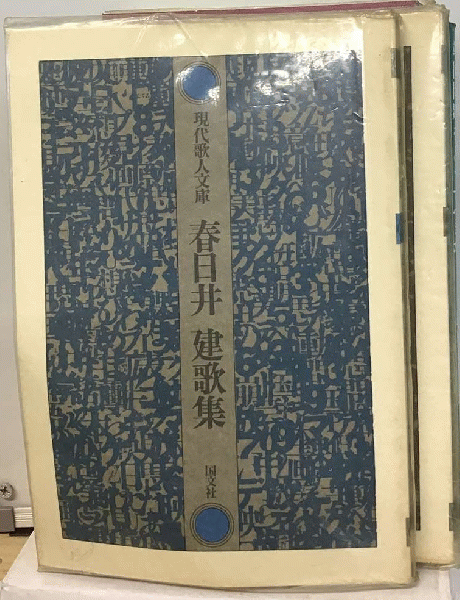 現代歌人文庫
春日井 建歌集
国文社